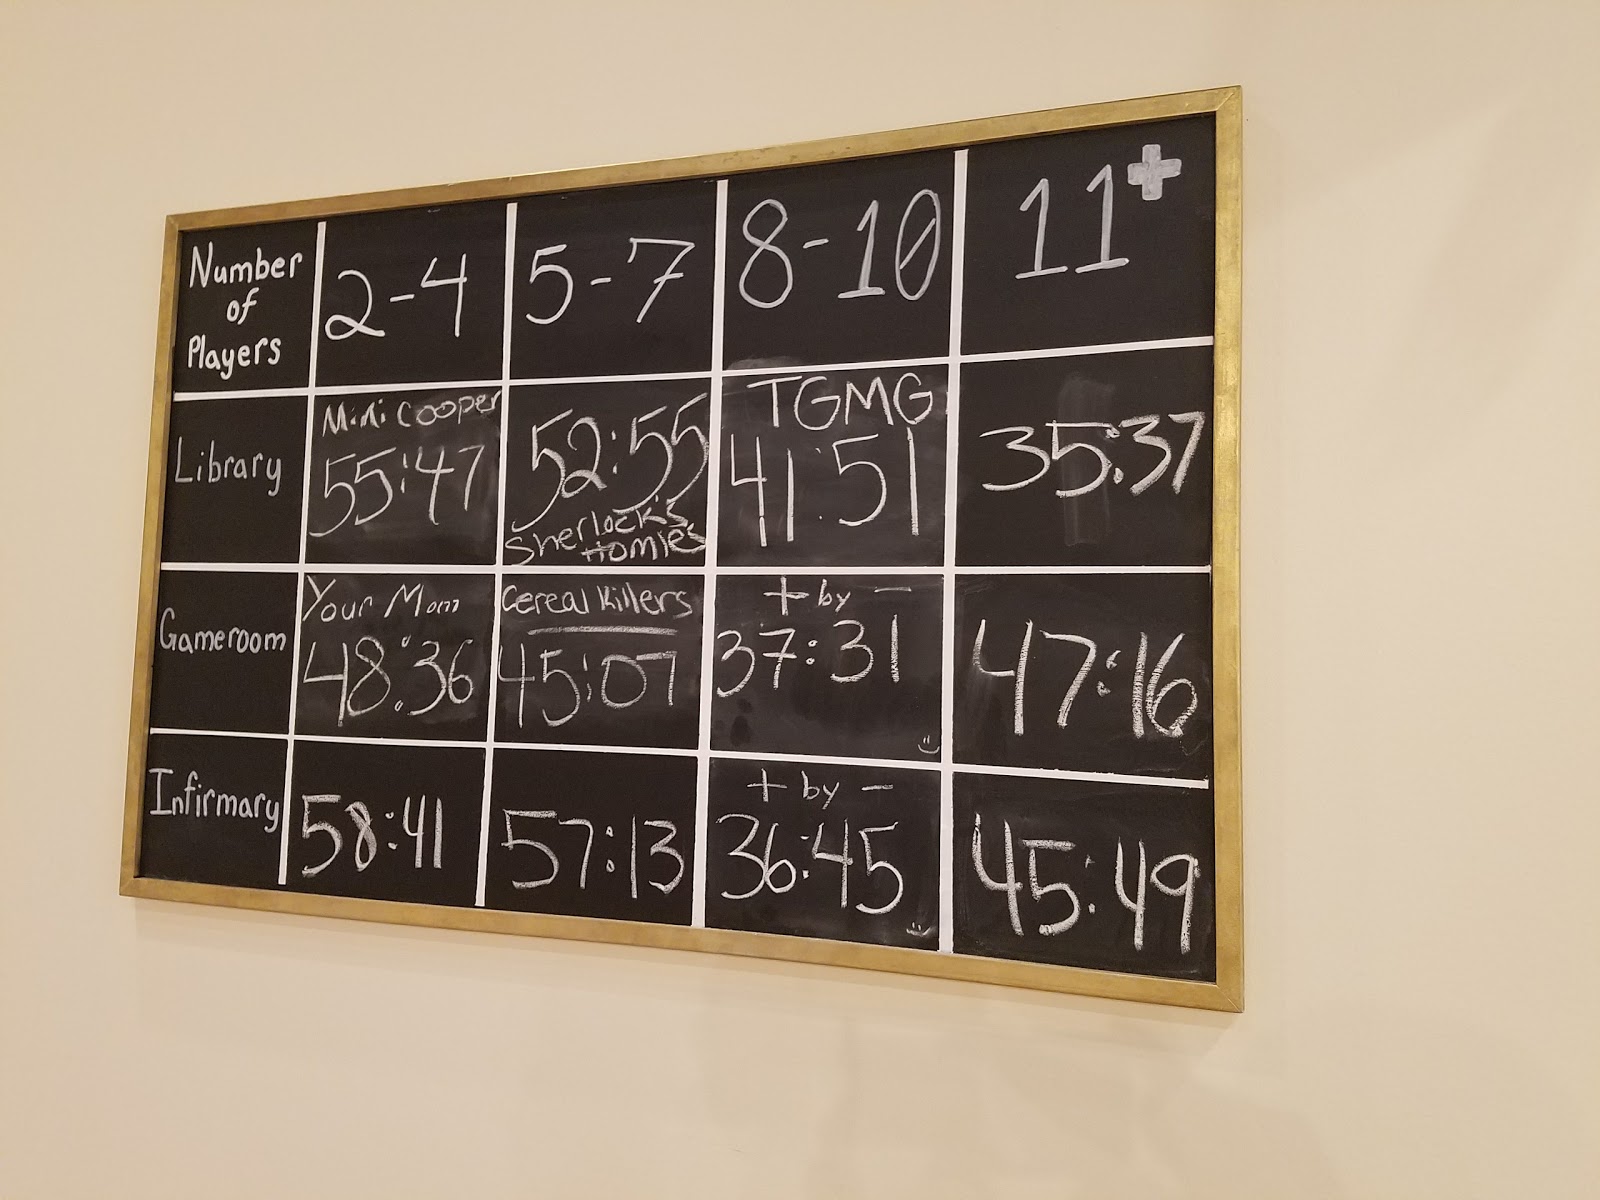 Number
of
Players
2-4
5-7
8-10
11+
Library
Mini Cooper
55:47
52:55
Sherlock's
Homies
TGMG
41:51
35:37
Gameroom
Your Mom
48:36
Cereal Killers
45:07
+ by -
37:31
47:16
Infirmary
58:41
57:13
+ by -
36:45
45:49